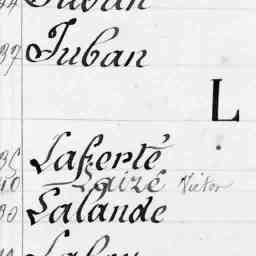 37 Juban
L
Laferté
Laizé Victor
30 Lalande